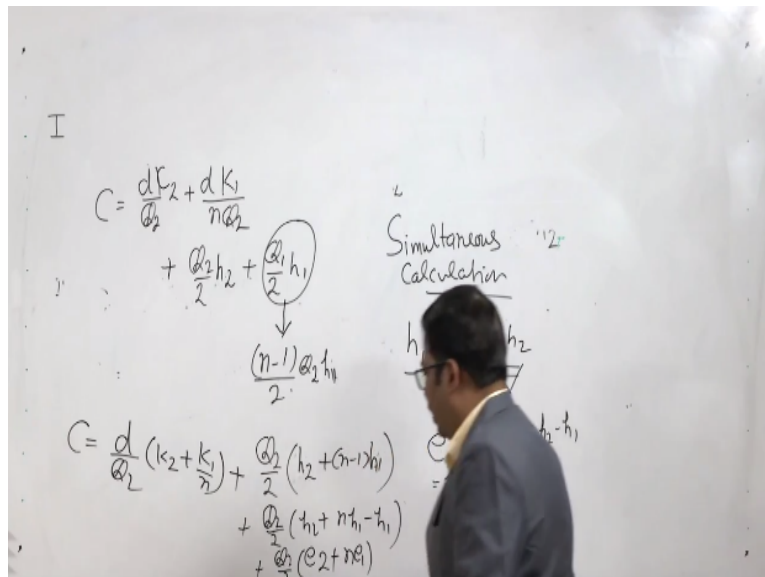 I
C = dK2/Q2 + dK1/nQ2
+ Q2/2 h2 + Q1/2 h1
↓
(n-1)/2 Q2 h1
C = d/Q2 (K2 + K1/n) + Q2/2 (h2 + (n-1)h1)
+ Q2/2 (h2 + nh1 - h1)
+ Q2/2 (e2 + ne1)
Simultaneous
Calculation
h h2
e h2 - h1
=